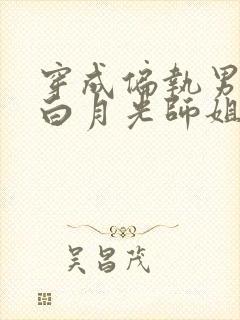 穿成偏執男
白月光師姐
吴昌茂